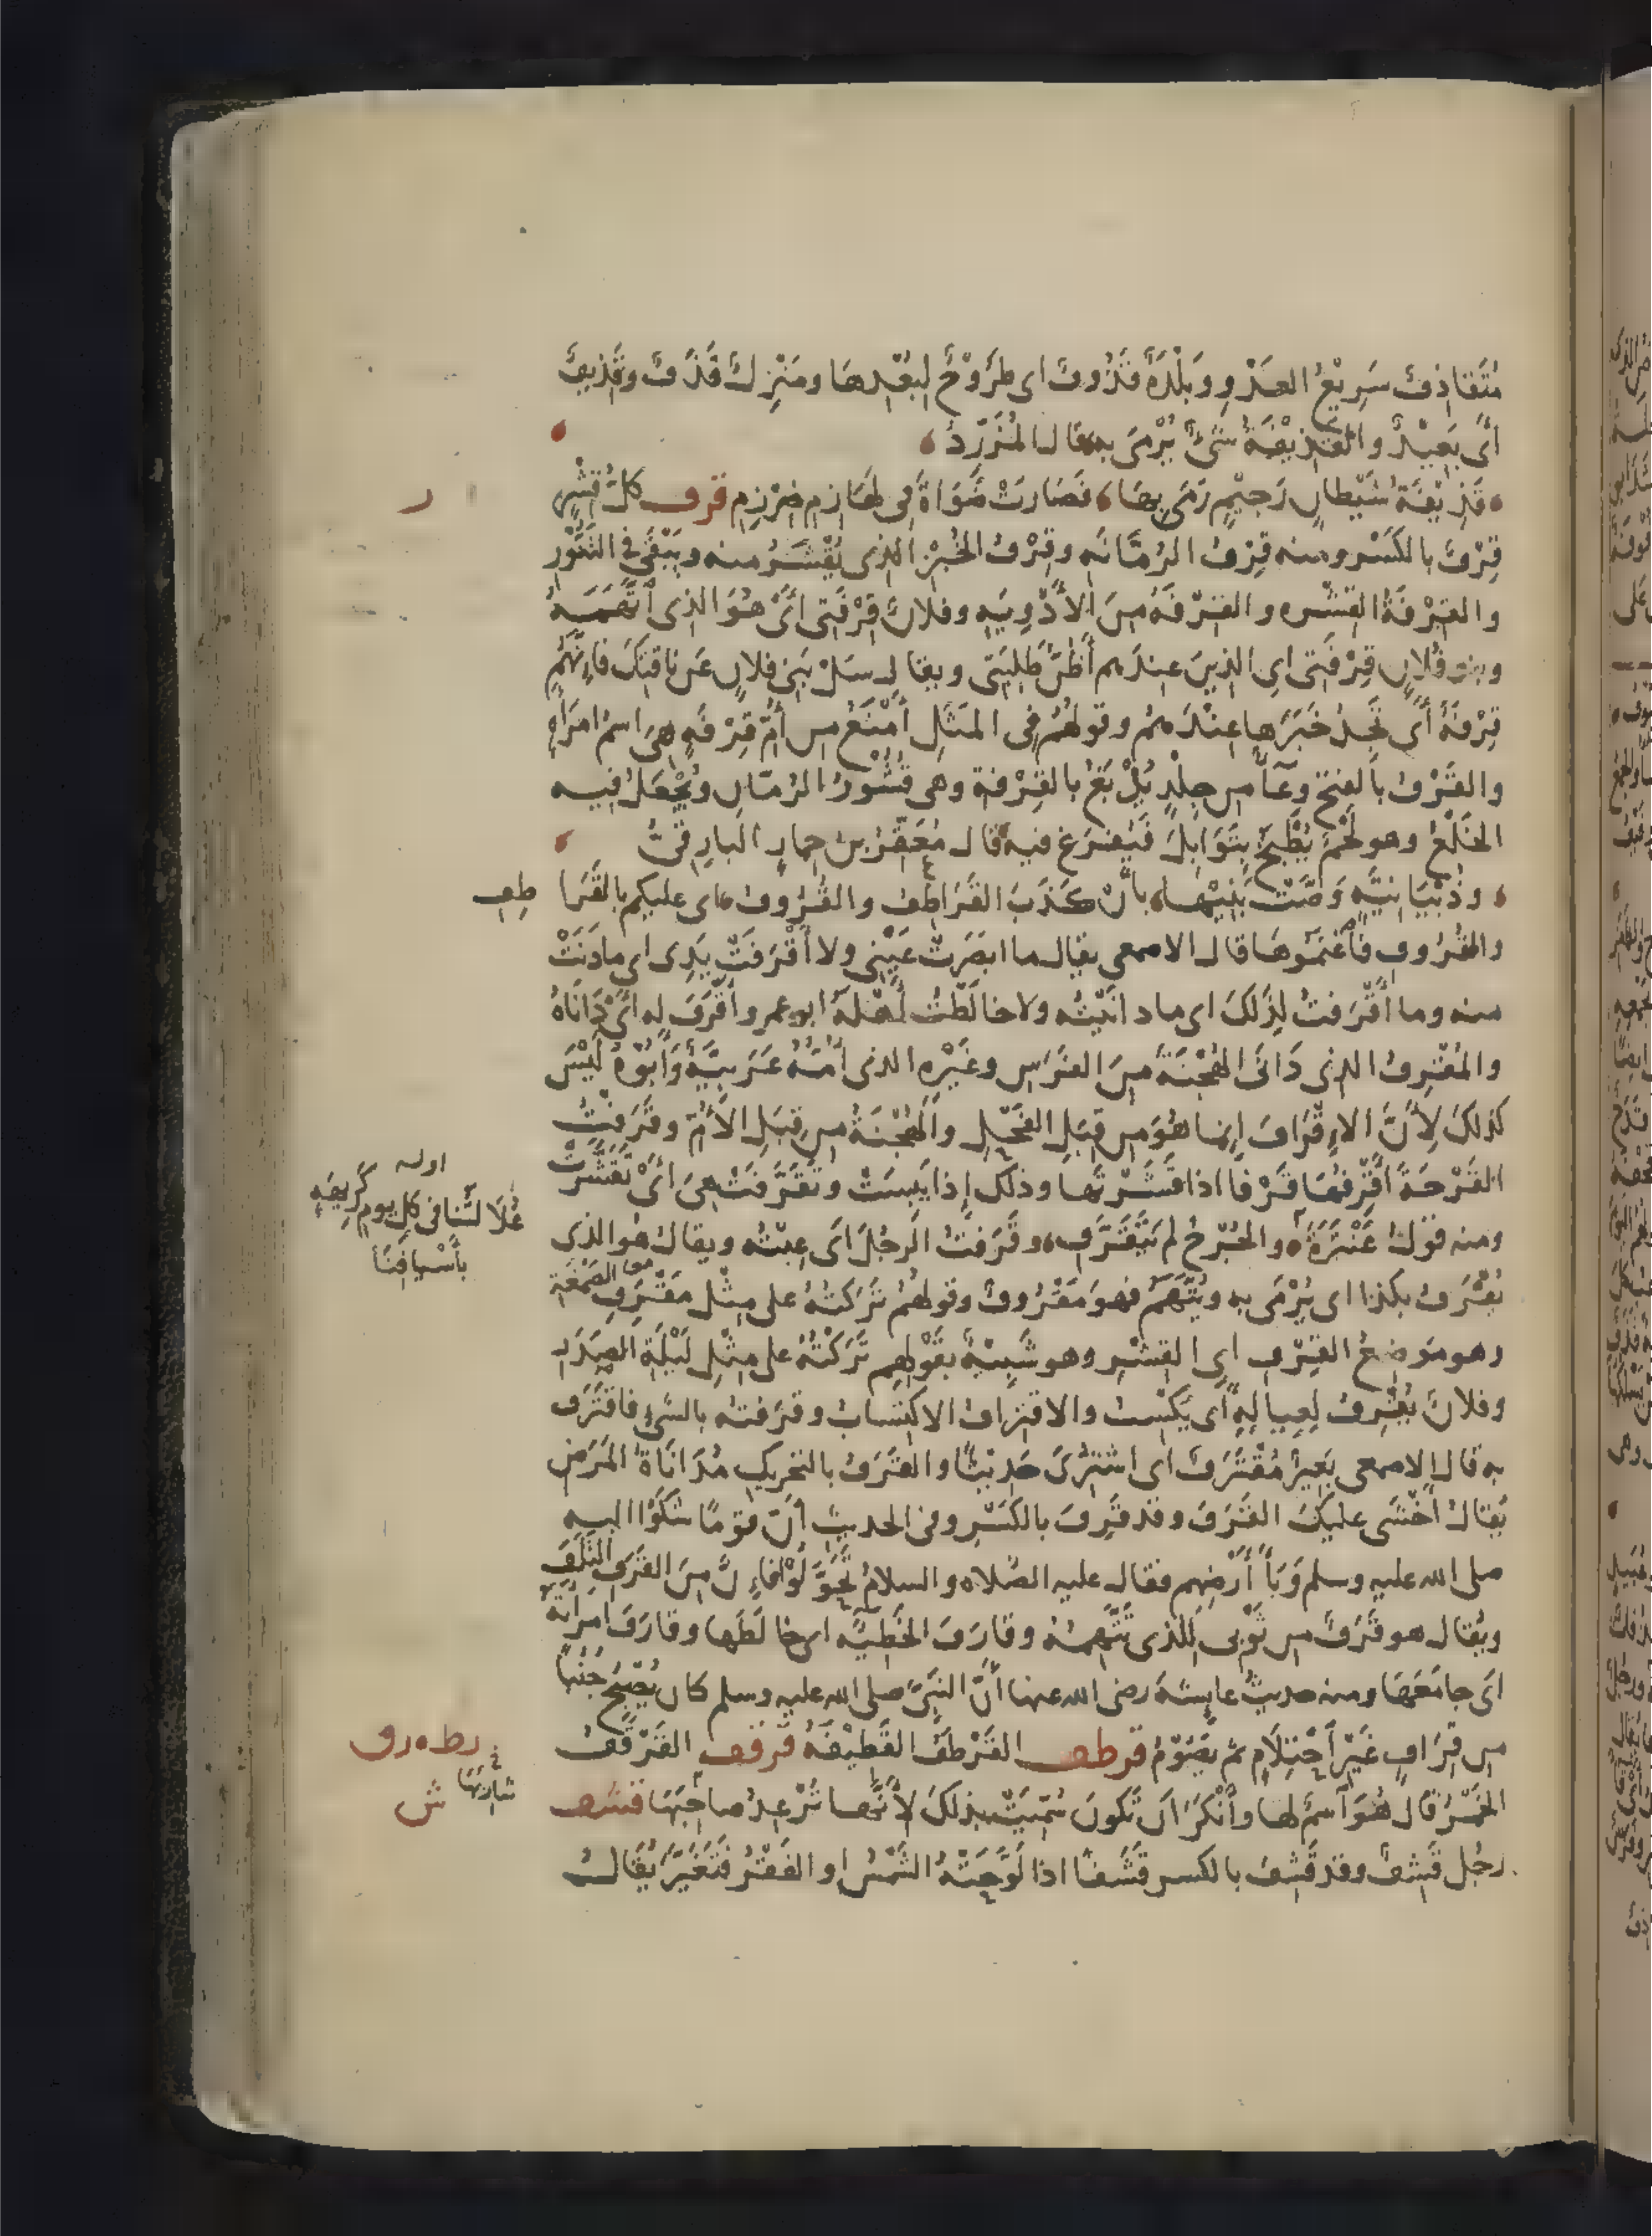 مُتَقاذِفٌ سَرِيْعُ العَدْوِ وبَلْدَةٌ قَذُوفٌ اى طَرُوْحٌ لِبُعْدِهَا ومَنْزِلٌ قَذَفٌ وقَذِيفٌ
اَىْ بَعِيْدٌ والقَذِيْفَةُ شَىْءٌ يُرْمَى به قال المُزَرِّدُ
قَذِيْفَةُ شَيْطانٍ رَجِيْمٍ رَمَى بِهَا فَصَارَتْ ضَوَاةً فى لَهَازِمِ ضِرْزِمِ قرف كلُّ قِشْرٍ
قِرْفٌ بالكَسْر ومنه قِرْفُ الرُمَّانَه وقِرْفُ الخُبْزِ الذى يُقْشَرُ منه ويَبْقَى فى التَنُّوْرِ
والقِرْفَةُ القِشْره والقِرْفَةُ مِنَ الأَدْوِيَه وفلانٌ قِرْفَتى اَىْ هُوَ الذى أَتَّهِمُهُ
وبنو فُلانٍ قِرْفَتى اى الذينَ عِندَهم أَظُنُّ طَلِبَتى ويقال سَلْ بَنى فلانٍ عَن ناقتِكَ فاِنَّهُم
قِرْفَةٌ أَى تَجِدُ خَبَرَها عِنْدَهمُ وقولُهُم فى المَثَلِ أَمْنَعُ من أُمِّ قِرْفَه هِىَ اسمُ امرَأَهٍ
والقَرْفُ بالفتح وِعَاءٌ من جِلْدٍ يُدْبَغُ بالقِرْفة وهى قُشُوْرُ الرُمّانِ ويُجْعَلُ فيه
الخَلْعُ وهو لَحْمٌ يُطْبَخُ بِتَوَابِلَ فَيُفرَغ فيه قال مُعَقِّرُ بن حِمارٍ البارِقىُّ
وذُبْيَانِيَّهٍ وَصَّتْ بَنِيْها بأَنْ كَذَبَ القَرَاطِفُ والقُرُوفُ اى عليكم بالقَرَا طِفِ
والقُرُوفِ فاغْنَمُوهَا قال الاصمعى يقال ما ابصَرَتْ عَيْنى ولا أَقْرَفَتْ يَدِى اى ما دَنَتْ
منه وما أَقْرَفتُ لِذَلكَ اى ما دانَيْتُه ولا خالَطْتُ أَهْلَهُ ابو عمرو أَقْرَفَ له اَىْ دَانَاهُ
والمُقْرِفُ الذى دَانَى الهُجْنَةَ مِنَ الفَرَسِ وغَيْرِه الذى أُمُّهُ عَرَبيَّةٌ وَأَبُوْهُ لَيْسَ
كذلكَ لِأَنَّ الاِقْرَافَ إنما هُوَ من قِبَلِ الفَحْلِ والهُجْنَةُ من قِبَلِ الأُمِّ وقَرَفْتُ
القَرْحَةَ أَقْرِفُهَا قَرْفا اذا قَشَرْتَها وذلك إذا يَبِسَتْ وتَقَرَّفَتْ هِىَ اَىْ تَقَشَّرَتْ
ومنه قولُ عَنْتَرَةَ والجُرْحُ لم يَتَقَرَّفِ وقَرَفتُ الرجُلَ اَى عِبْتُه ويقالُ هُو الذى
يُقْرَفُ بكذا اى يُرْمَى به ويُتَّهَمُ فهوَ مَقْرُوفٌ وقولهُمُ تَرَكتُهُ على مِثْلِ مَقْرَفِ الصَمْغَةِ
وهو مَوضِعُ القِرْفِ اى القِشْرِ وهو شَبِيْهٌ بقَوْلِهِم تَرَكْتُهُ على مِثْلِ لَيْلَةِ الصَدَر
وفلانٌ يُقْرِفُ لِعِيالِهِ أَى يَكْسِبُ والاقتِرَافُ الاكتِسَابُ وقَرَفتُه بالشىءِ فاقتَرَف
به قال الاصمعى بَعِيرٌ مُقْتَرَفٌ اى اشتُرِىَ حَدِيْثًا والقَرَفُ بالتحريكِ مُدَانَاةُ المَرَضِ
يُقالُ أَخْشَى عليكَ القَرَفَ وقد قَرِفَ بالكَسْرِ وفى الحديثِ أنّ قومًا شَكَوْا اليهِ
صلى الله عليه وسلم وَبَأَ أَرْضِهم فقال عليه الصَلاه والسلامُ تَحَوَّلُوْا فاِنَّ مِنَ القَرَفِ التَلَفَ
ويُقال هو قَرَفٌ من ثَوْبى للذى تَتَّهِمُهُ وقارَفَ الخَطِيئَه اى خالَطَها وقارَفَ امرَأَتَهُ
اَى جامَعَهَا ومنه حديثُ عايشةَ رضى الله عنها أَنَّ النبىَّ صلى الله عليه وسلم كان يُصْبِحُ جُنُبًا
من قِرَافٍ غَيْرِ احْتِلَامٍ ثم يَصُوْمُ قرطف القَرْطَفُ القَطِيْفَهُ قرقف القَرْقَفُ
الخَمْرُ قال هُوَ اسمٌ لها وأَنْكَرَ أن تكونَ سُمِّيَتْ بذلكَ لأَنَّها تُرْعِدُ صاحِبَهَا قشف
رجُل قَشِفٌ وقد قَشِفَ بالكسر قَشَفًا اذا لَوَّحَتْهُ الشَمْسُ او الفَقْرُ فتَغَيَّرَ يُقَالُ
ر
اوله
عُلَالَتُنا فى كل يوم كَرِيهَه
بأَسْيافِنَا
شارِبَهَا
ش